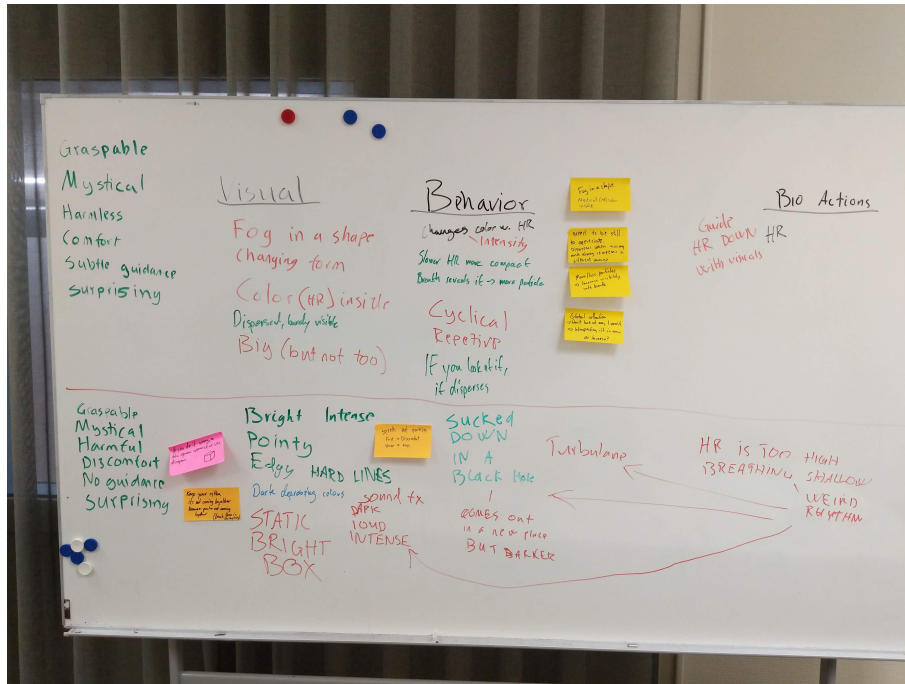 Graspable
Mystical
Harmless
Comfort
Subtle guidance
Surprising
Visual
Fog in a shape
changing form
Color (HR) inside
Dispersed, barely visible
Big (but not too)
Behavior
Changes color w. HR
Intensity
Slower HR more compact
Breath reveals it → more particle
Cyclical
Repetive
IF you look at it,
it disperses
Fog in a shape
Bio Actions
HR
Guide
HR DOWN
with visuals
Graspable
Mystical
Harmful
Discomfort
No guidance
Surprising
Bright Intense
Pointy
Edgy HARD LINES
Dark depressing colors
STATIC
BRIGHT
BOX
sound fx
DARK
LOUD
INTENSE
Sucked
DOWN
IN A
Black Hole
COMES out
in a new place
BUT DARKER
Turbulane
HR is TOO HIGH
BREATHING SHALLOW
WEIRD
RHYTHM